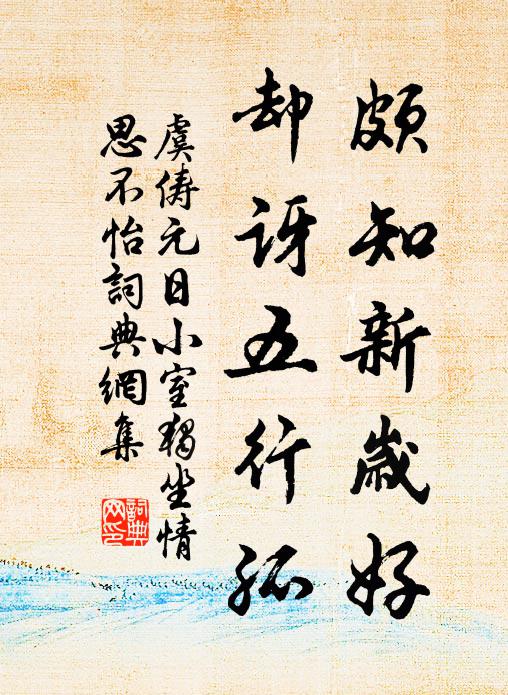 頗知新歲好
却訝五行孤
虞儔元日小室獨坐情
思不怡詞典網集
詞典
网印